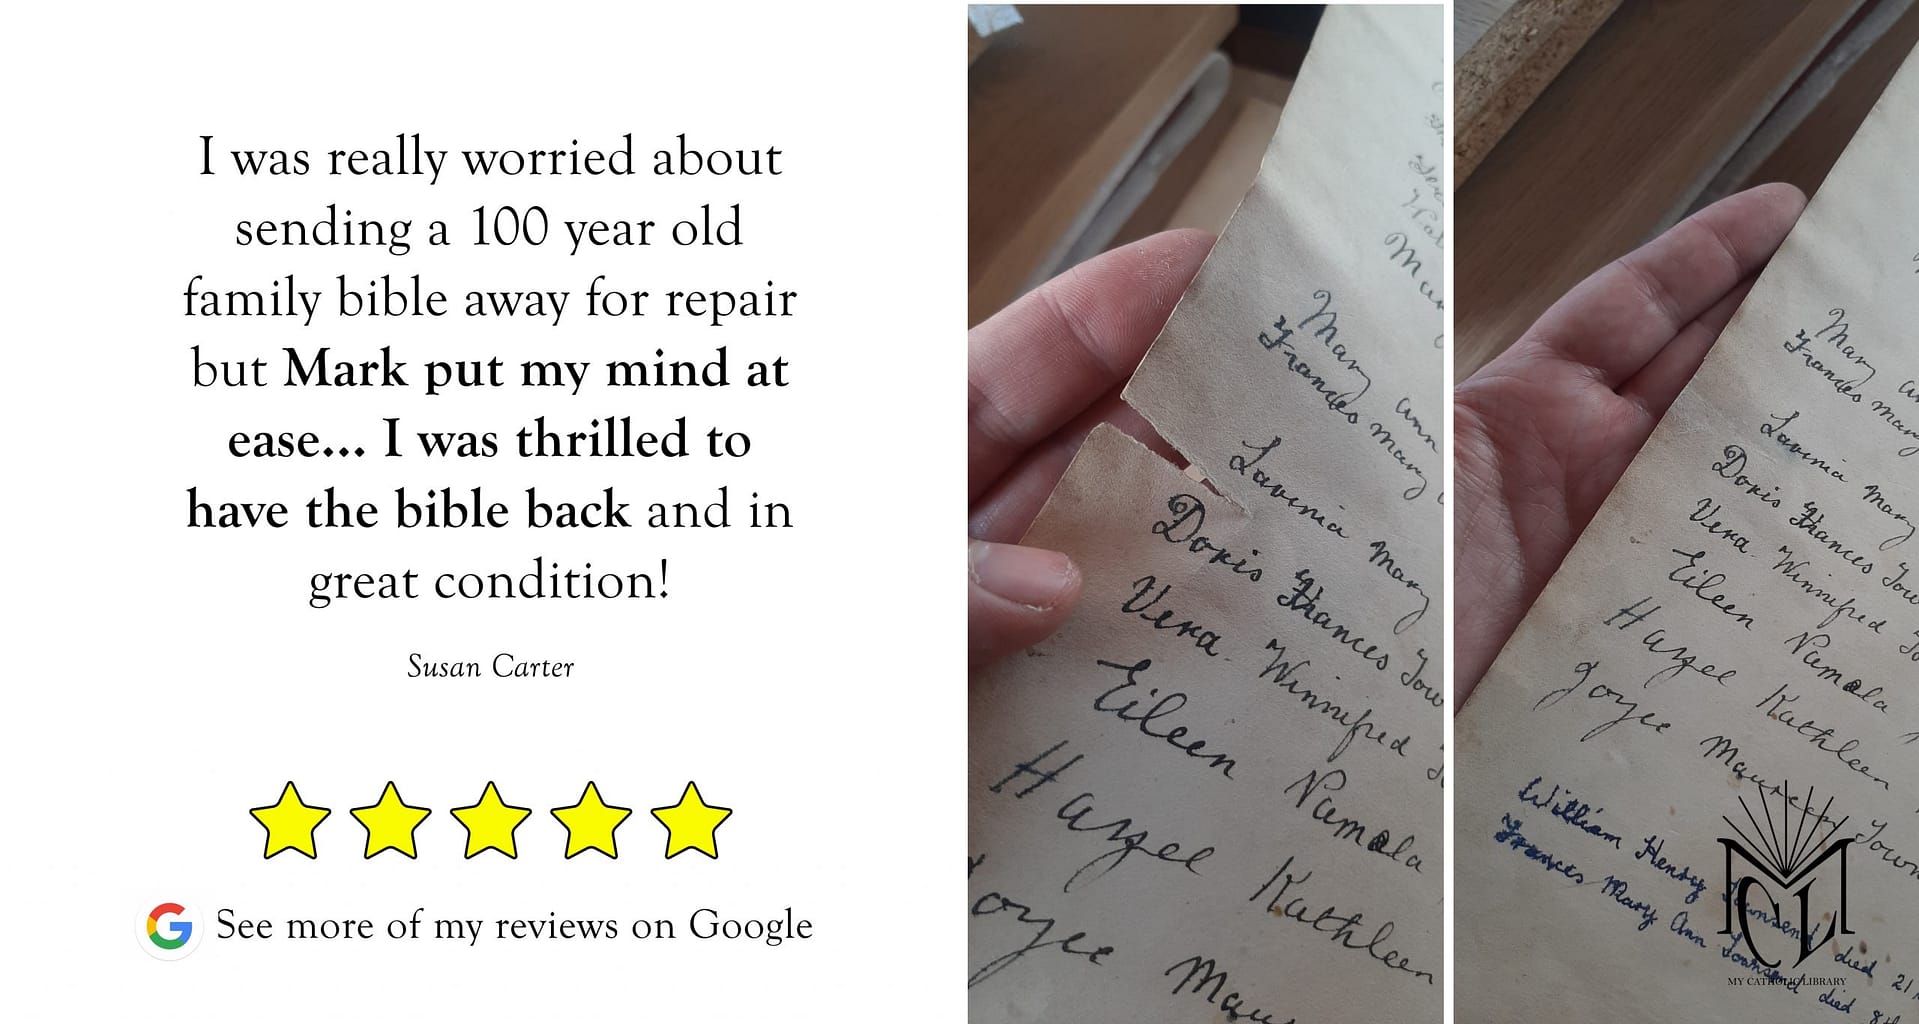 I was really worried about
sending a 100 year old
family bible away for repair
but Mark put my mind at
ease... I was thrilled to
have the bible back and in
great condition!
Susan Carter
G See more of my reviews on Google
Mary ann
Frances Mary
Lavinia Mary
Doris Frances Tow
Vera. Winnifred
Eileen Pamela
Hazel Kathleen
oyce Mau
Mary
Frances Mary
Lavinia Mary
Doris Frances Tow
Vera. Winnifred
Eileen Pamela
Hazel Kathleen
Joyce Maureen Town
William Henry Townsend died 21
Frances Mary Ann Townsend died 8th
MCL
MY CATHOLIC LIBRARY